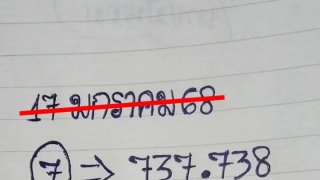 17 มกราคม 68
7 → 737.738